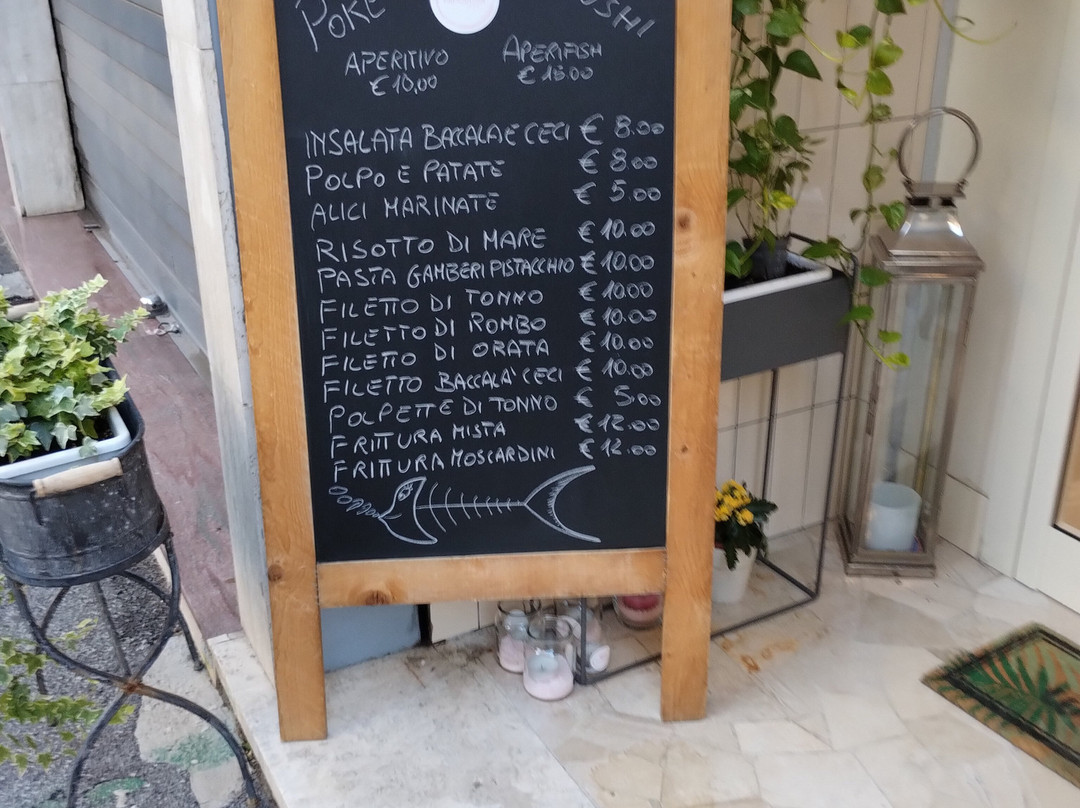 POKE
SUSHI
APERITIVO
€ 10,00
APERIFISH
€ 15.00
INSALATA BACCALA E CECI € 8.00
POLPO E PATATE € 8.00
ALICI MARINATE € 5.00
RISOTTO DI MARE € 10.00
PASTA GAMBERI PISTACCHIO € 10.00
FILETTO DI TONNO € 10.00
FILETTO DI ROMBO € 10.00
FILETTO DI ORATA € 10.00
FILETTO BACCALA' CECI € 10.00
POLPETTE DI TONNO € 5.00
FRITTURA MISTA € 12.00
FRITTURA MOSCARDINI € 12.00